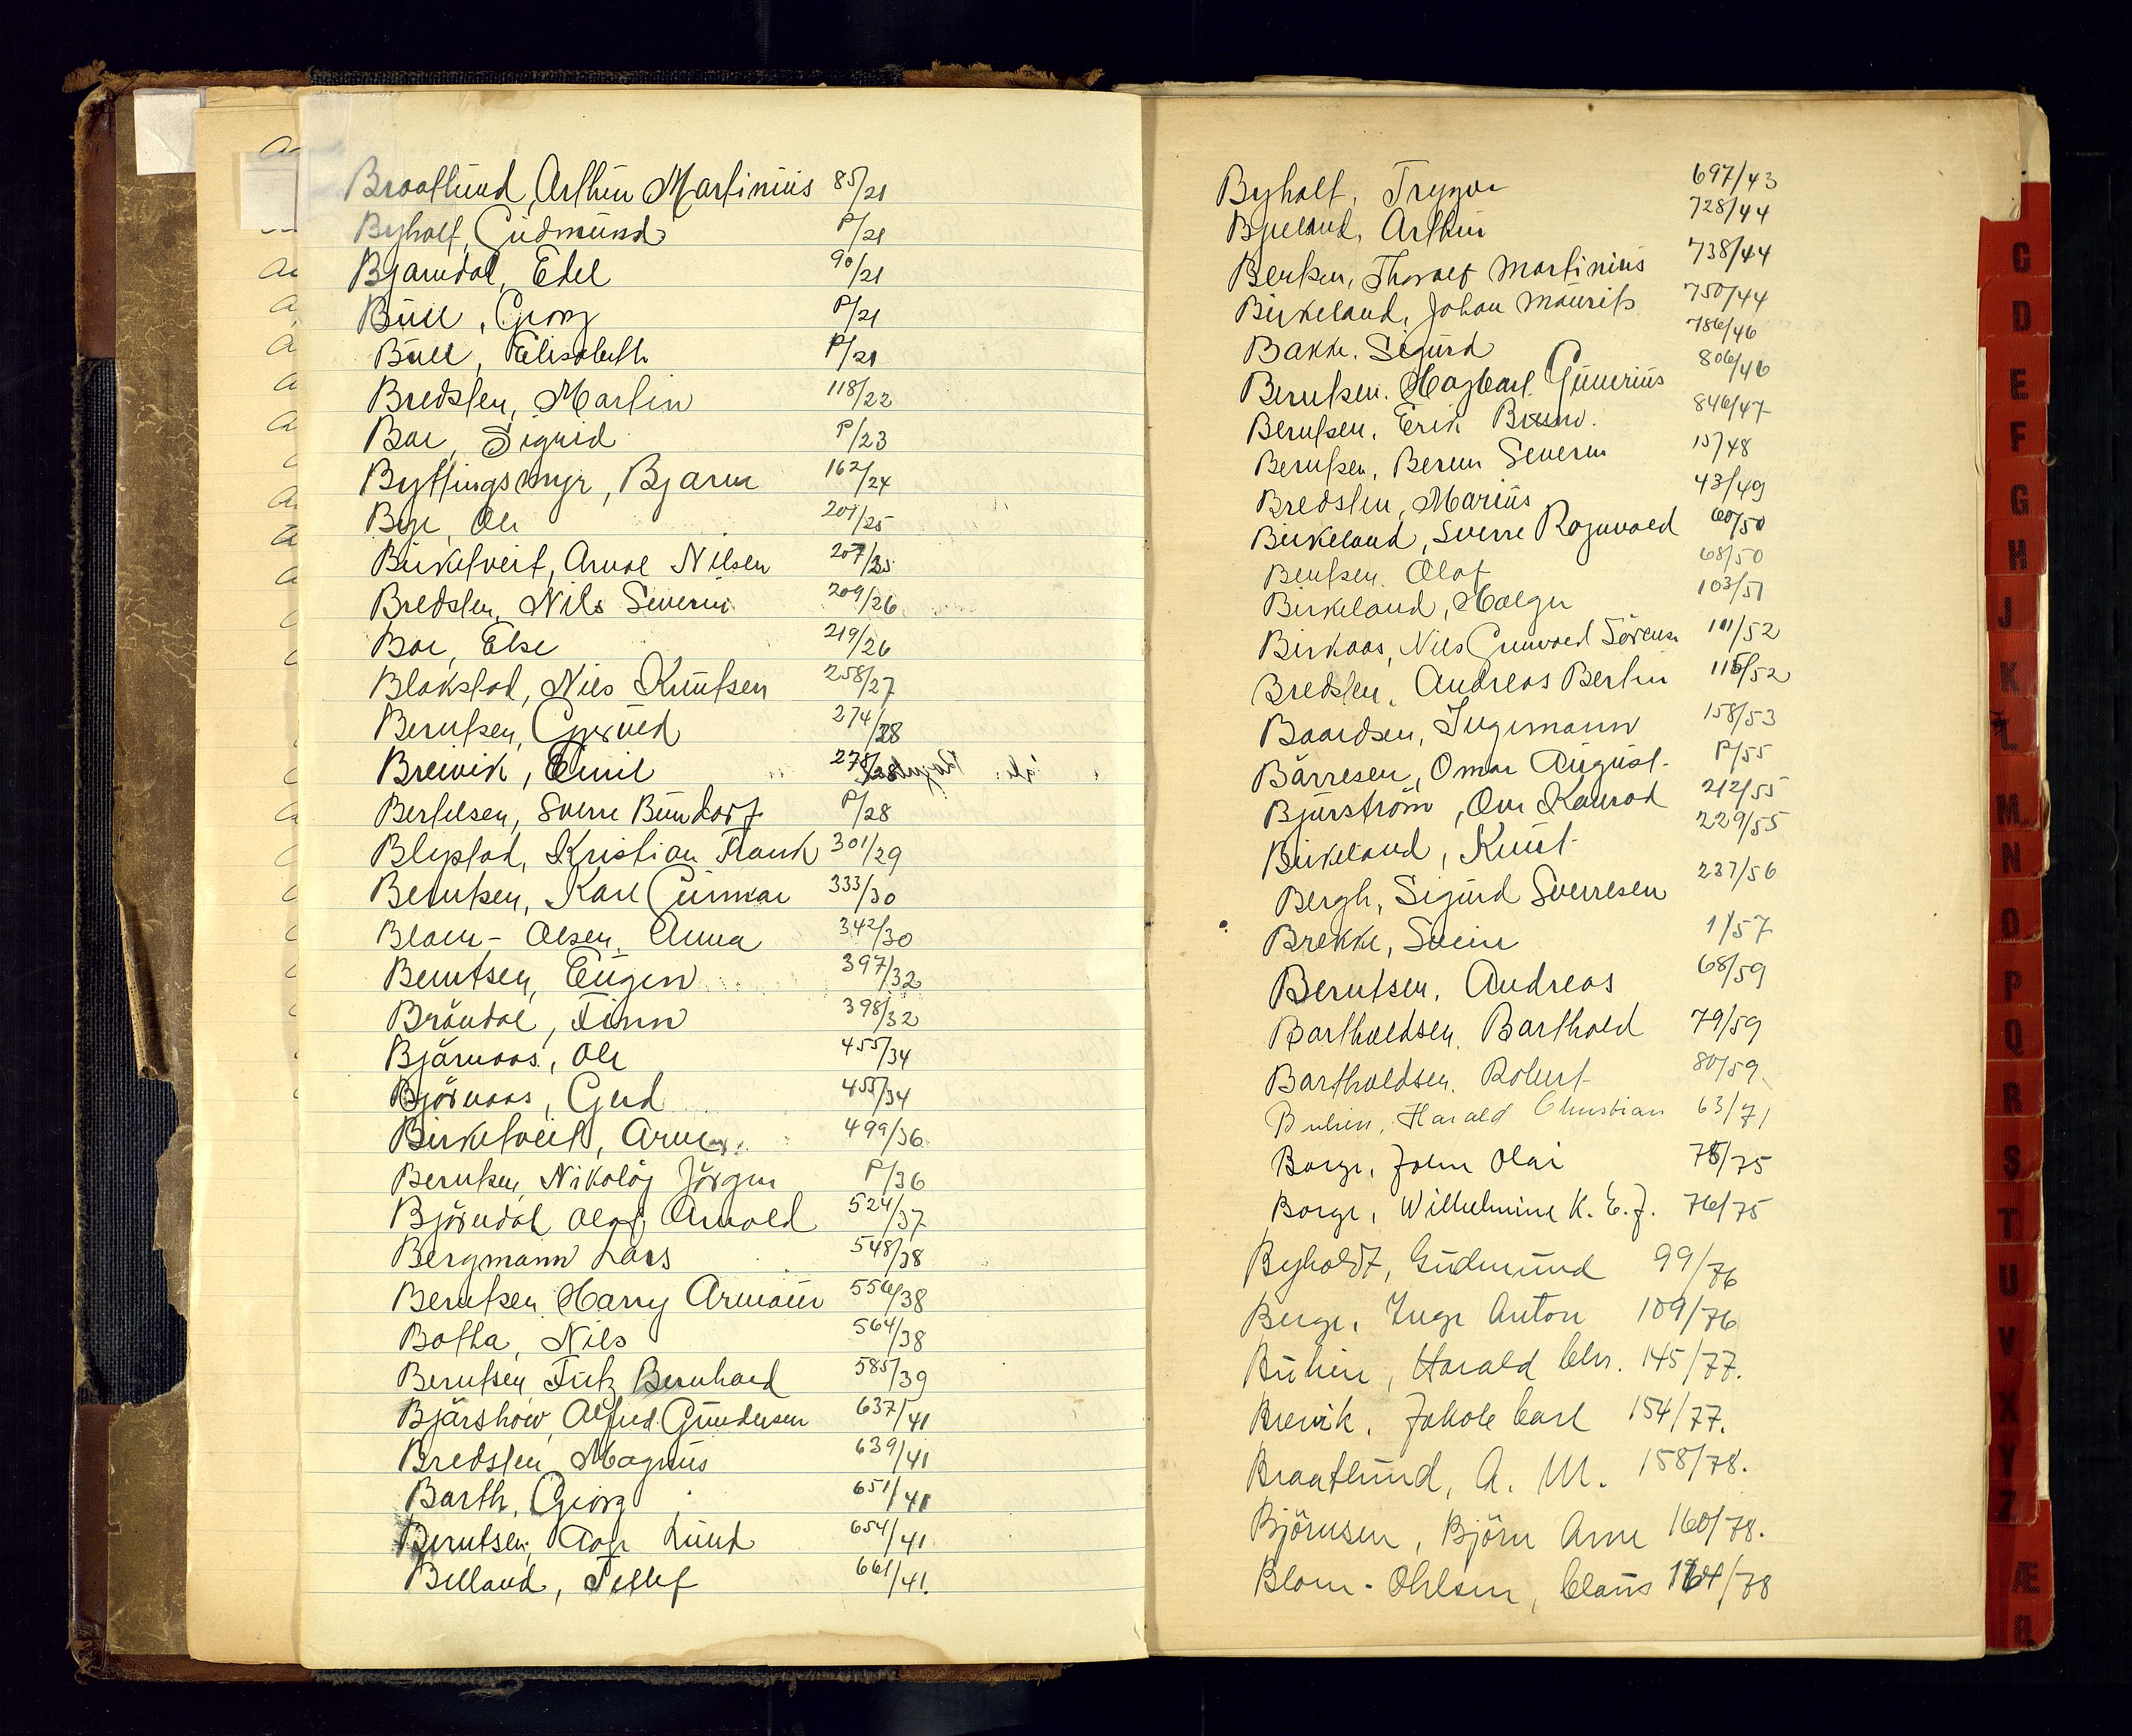 Braatlund, Arthur Martinius 85/21
Byholt, Gudmund P/21
Bjarndal, Edel 90/21
Bull, Georg P/21
Bull, Elisabeth P/21
Bredsten, Martin 118/22
Boe, Sigurd P/23
Byttingsmyr, Bjarne 162/24
Bye, Ole 201/25
Birketveit, Arnol Nilsen 207/25
Bredsten, Nils Severin 209/26
Boe, Else 219/26
Blakstad, Nils Knutsen 258/27
Berntsen, Gjeruld 274/28
Breivik, Emil 278/28
Bertelsen, Sverre Bundorf P/28
Blipstad, Kristian Frank 301/29
Berntsen, Karl Gunnar 333/30
Blom-Olsen, Anna 342/30
Berntsen, Eugen 397/32
Bröndal, Finn 398/32
Björnaas, Ole 455/34
Björnaas, Gerd 455/34
Birketveit, Arne 499/36
Berntsen, Nikolai Jörgen P/36
Björndal Olaf Arnold 524/37
Bergmann Lars 548/38
Berntsen Harry Armour 556/38
Botha, Nils 564/38
Berntsen Fritz Bernhard 585/39
Bjärskow, Alfred Gundersen 637/41
Bredsten, Magnus 639/41
Barth, Georg 651/41
Berntsen, Aage Lund 654/41
Belland, Tellef 661/41.
Byholt, Trygve 697/43
Bjelland, Arthur 728/44
Bentsen, Thoralf Martinius 738/44
Birkeland, Johan Mauritz 750/44
Bakke, Sigurd 786/46
Berntsen, Hagbart Gunerius 806/46
Berntsen, Erik Bruno. 846/47
Berntsen, Bernt Severin 15/48
Bredsten, Marius 43/49
Birkeland, Sverre Rognvald 60/50
Bentsen, Olaf 68/50
Birkeland, Holger 103/51
Birkaas, Nils Gunvald Sörensen 111/52
Bredsten, Andreas Bertin 115/52
Baardsen, Ingemann 158/53
Bärresen, Omar August P/55
Bjurström, Ove Konrad 212/55
Birkeland, Knut 229/55
Bergh, Sigurd Sverresen 237/56
Brekke, Svein 1/57
Berntsen, Andreas 68/59
Bartholdsen, Barthold 79/59
Bartholdsen, Robert 80/59
Buhin, Harald Christian 63/71
Borge, John Olai 75/75
Borge, Wilhelmine K. E. J. 76/75
Byholdt, Gudmund 99/76
Berge, Inge Anton 109/76
Buhin, Harald Chr. 145/77.
Brevik, Jakob Carl 154/77.
Braatlund, A. M. 158/78.
Björnsen, Björn Arne 160/78.
Blom-Ohlsen, Claus 164/78
C
D
E
F
G
H
J
K
L
M
N
O
P
Q
R
S
T
U
V
X
Y
Z
Æ